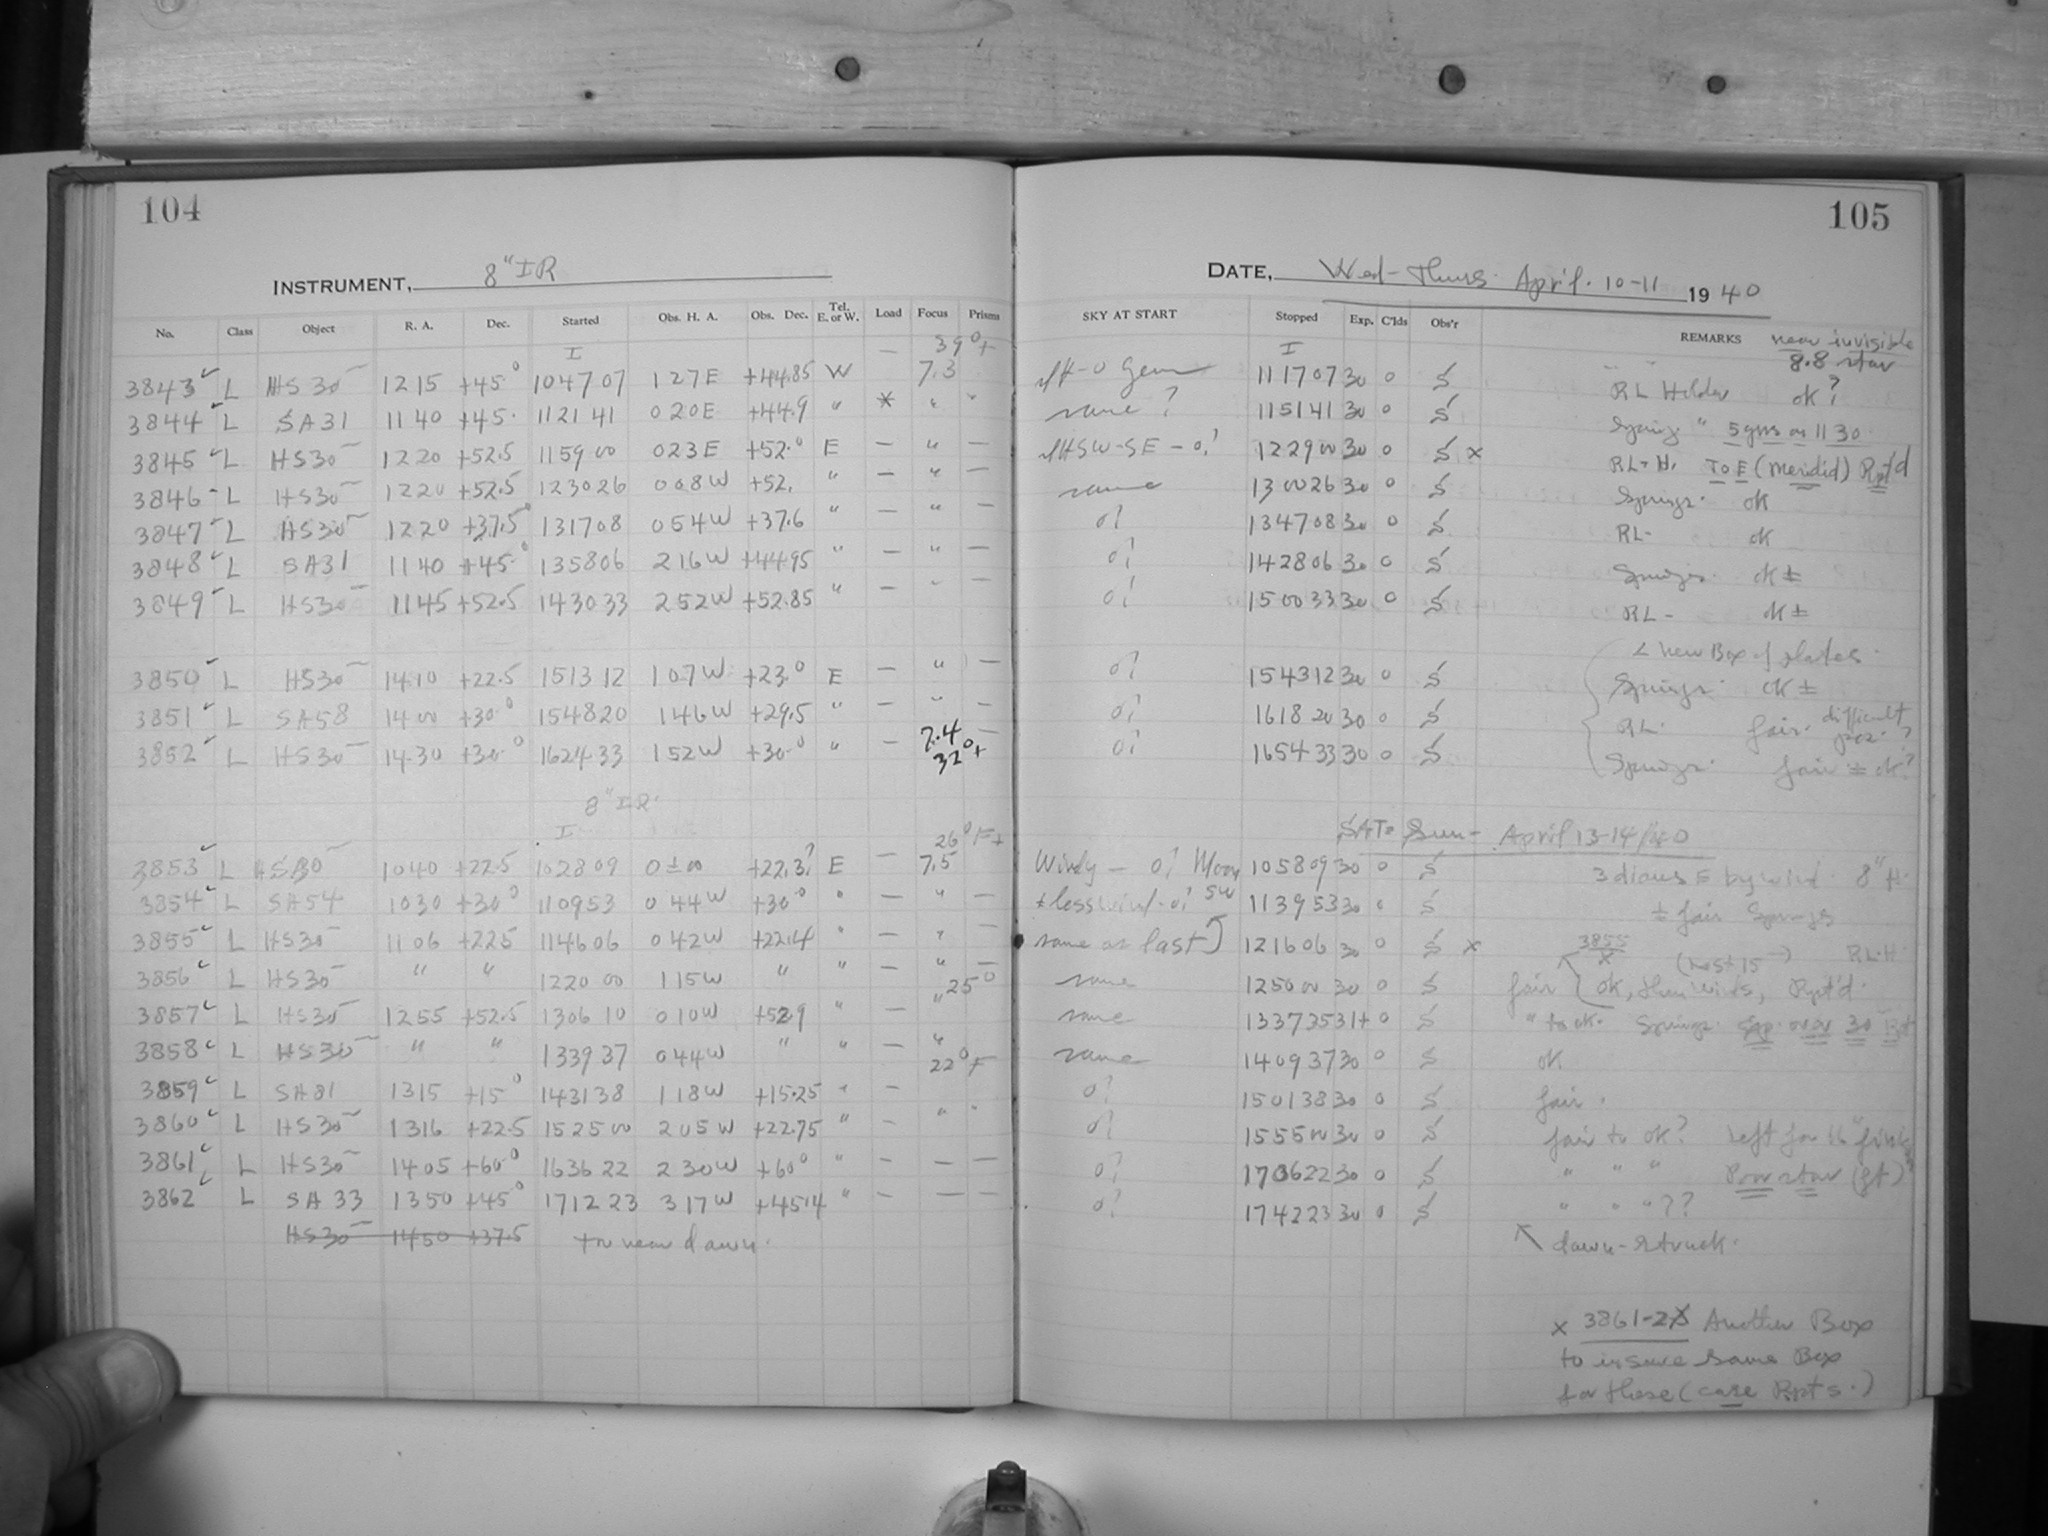 104
INSTRUMENT, 8" IR
No. Class Object R. A. Dec. Started Obs. H. A. Obs. Dec. Tel. E. or W. Load Focus Prisms
I — 39°+
3843 L HS30 12 15 +45° 10 47 07 1 27 E +44.85 W 7.3
3844 L SA31 11 40 +45. 11 21 41 0 20 E +44.9 " * " "
3845 L HS30 12 20 +52.5 11 59 00 0 23 E +52.° E — " —
3846 L HS30 12 20 +52.5 12 30 26 0 08 W +52. " — " —
3847 L HS30 12 20 +37.5 13 17 08 0 54 W +37.6 " — " —
3848 L SA31 11 40 +45° 13 58 06 2 16 W +44.95 " — " —
3849 L HS30 11 45 +52.5 14 30 33 2 52 W +52.85 " — " —
3850 L HS30 14 10 +22.5 15 13 12 1 07 W +23.° E — " —
3851 L SA58 14 00 +30° 15 48 20 1 46 W +29.5 " — " —
3852 L HS30 14 30 +30° 16 24 33 1 52 W +30.° " — 7.4 —
32°+
8" IR.
I 26°F+
3853 L HS30 10 40 +22.5 10 28 09 0 ± 00 +22.3? E — 7.5
3854 L SA54 10 30 +30° 11 09 53 0 44 W +30° " — " —
3855 L HS30 11 06 +22.5 11 46 06 0 42 W +22.4 " — " —
3856 L HS30 " " 12 20 00 1 15 W " " — " —
25°
3857 L HS30 12 55 +52.5 13 06 10 0 10 W +52.9 " — "
3858 L HS30 " " 13 39 37 0 44 W " " — "
22°F
3859 L SA81 13 15 +15° 14 31 38 1 18 W +15.25 " —
3860 L HS30 13 16 +22.5 15 25 00 2 05 W +22.75 " — " "
3861 L HS30 14 05 +60° 16 36 22 2 30 W +60° " — — —
3862 L SA 33 13 50 +45° 17 12 23 3 17 W +45.14 " — — —
HS30 14 50 +37.5 too near dawn.
105
DATE, Wed-Thurs. April. 10-11 1940
SKY AT START Stopped Exp. C'lds Obs'r REMARKS near invisible
I 8.8 star
11 17 07 30 0 S RL Holder ok?
same ? 11 51 41 30 0 S Springs " 5 gms on 11 30
SW-SE — 0? 12 29 00 30 0 S x RL-H. T O E (meridid) Rpt'd
same 13 00 26 30 0 S Springs. ok
0? 13 47 08 30 0 S RL- ok
0? 14 28 06 30 0 S Springs. ok ±
0? 15 00 33 30 0 S RL- ok ±
< new Box of plates.
0? 15 43 12 30 0 S Springs. ok ±
0? 16 18 20 30 0 S RL. fair. difficult
0? 16 54 33 30 0 S Springs. fair ± ok?
SAT- Sun- April 13-14/40
Windy — 0? Moon 10 58 09 30 0 S 3 dious E by wind. 8" H.
± less wind - 0? SW 11 39 53 30 0 S ± fair Springs
same as last 12 16 06 30 0 S x 3855 x (lost 15) RL-H
same 12 50 00 30 0 S fair ok, then winds, Rpt'd.
same 13 37 35 31+ 0 S " to ok. Springs. Exp. over 30 Rpt
same 14 09 37 30 0 S ok
0? 15 01 38 30 0 S fair.
0? 15 55 00 30 0 S fair to ok? Left for 16"
0? 17 06 22 30 0 S " " " Poor star (ft)
0? 17 42 23 30 0 S " " " ??
dawn-struck.
x 3861-2 Another Box
to insure same Box
for these (case Rpts.)